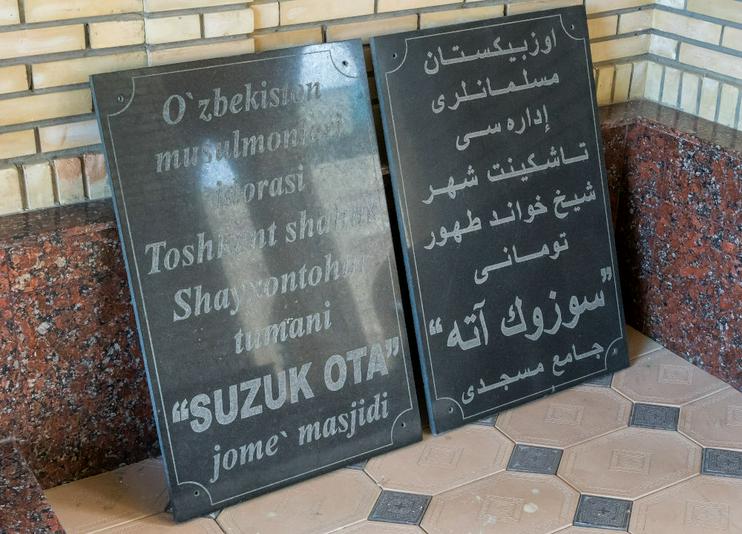 O`zbekiston
musulmonlari
idorasi
Toshkent shahar
Shayxontohur
tumani
“SUZUK OTA”
jome` masjidi
اوزبیکستان
مسلمانلری
إداره سی
تاشکینت شهر
شیخ خواند طهور
تومانی
”سوزوك آته“
جامع مسجدی